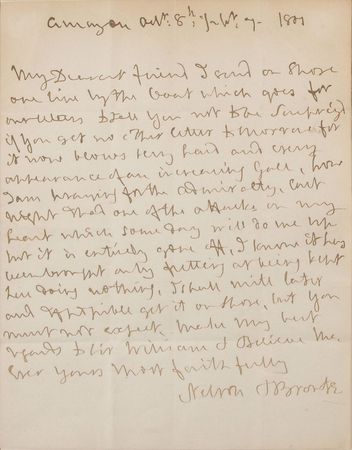 Amazon Octr: 8th: 1801
My Dearest friend I send on shore
one line by the boat which goes for
our letters to tell You not to be surprized
if you get no other letter tomorrow for
it now blows very hard and every
appearance of an increasing Gale, how
I am praying for the admiralty, last
night I had one of the attacks on my
heart which some day will do me up
but it is entirely gone off, I know it has
been brought on by fretting at being kept
here doing nothing, I shall write later
and if possible get it on shore, but you
must not expect make my best
regards to Sir William & Believe Me
Ever Yours Most faithfully
Nelson & Bronte